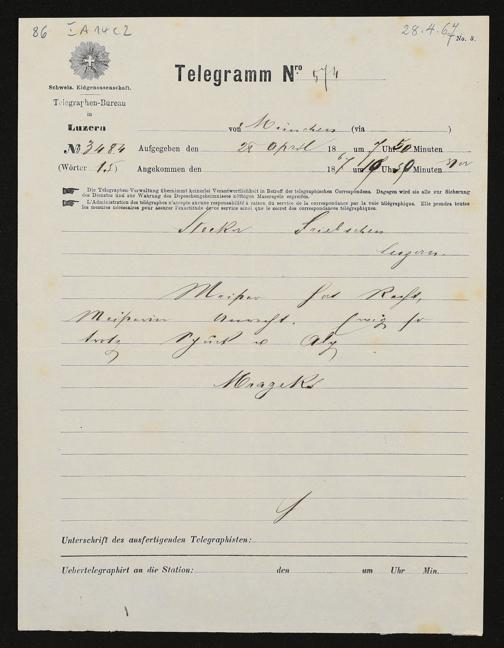 86 I A 14 c 2 28.4.67
No. 3.
Telegramm Nro 574
Schweiz. Eidgenossenschaft.
Telegraphen-Bureau
in
Luzern von München (via )
No 3484 Aufgegeben den 28 April 18 um 7 Uhr 50 Minuten
(Wörter 15) Angekommen den 1867 um Uhr Minuten
Die Telegraphen-Verwaltung übernimmt keinerlei Verantwortlichkeit in Betreff der telegraphischen Correspondenz. Dagegen wird sie alle zur Sicherung
des Dienstes und zur Wahrung des Depeschengeheimnisses nöthigen Massregeln ergreifen.
L'Administration des télégraphes n'accepte aucune responsabilité à raison du service de la correspondance par la voie télégraphique. Elle prendra toutes
les mesures nécessaires pour assurer l'exactitude de ce service ainsi que le secret des correspondances télégraphiques.
Stocker Triebschen
Luzern.
Meister hat Recht,
Meisterin Unrecht.
trotz
Mrazeks
Unterschrift des ausfertigenden Telegraphisten:
Uebertelegraphirt an die Station: den um Uhr Min.